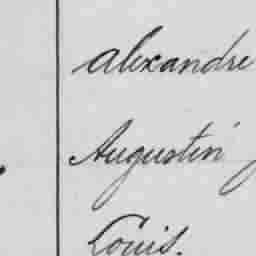 Alexandre
Augustin
Louis.